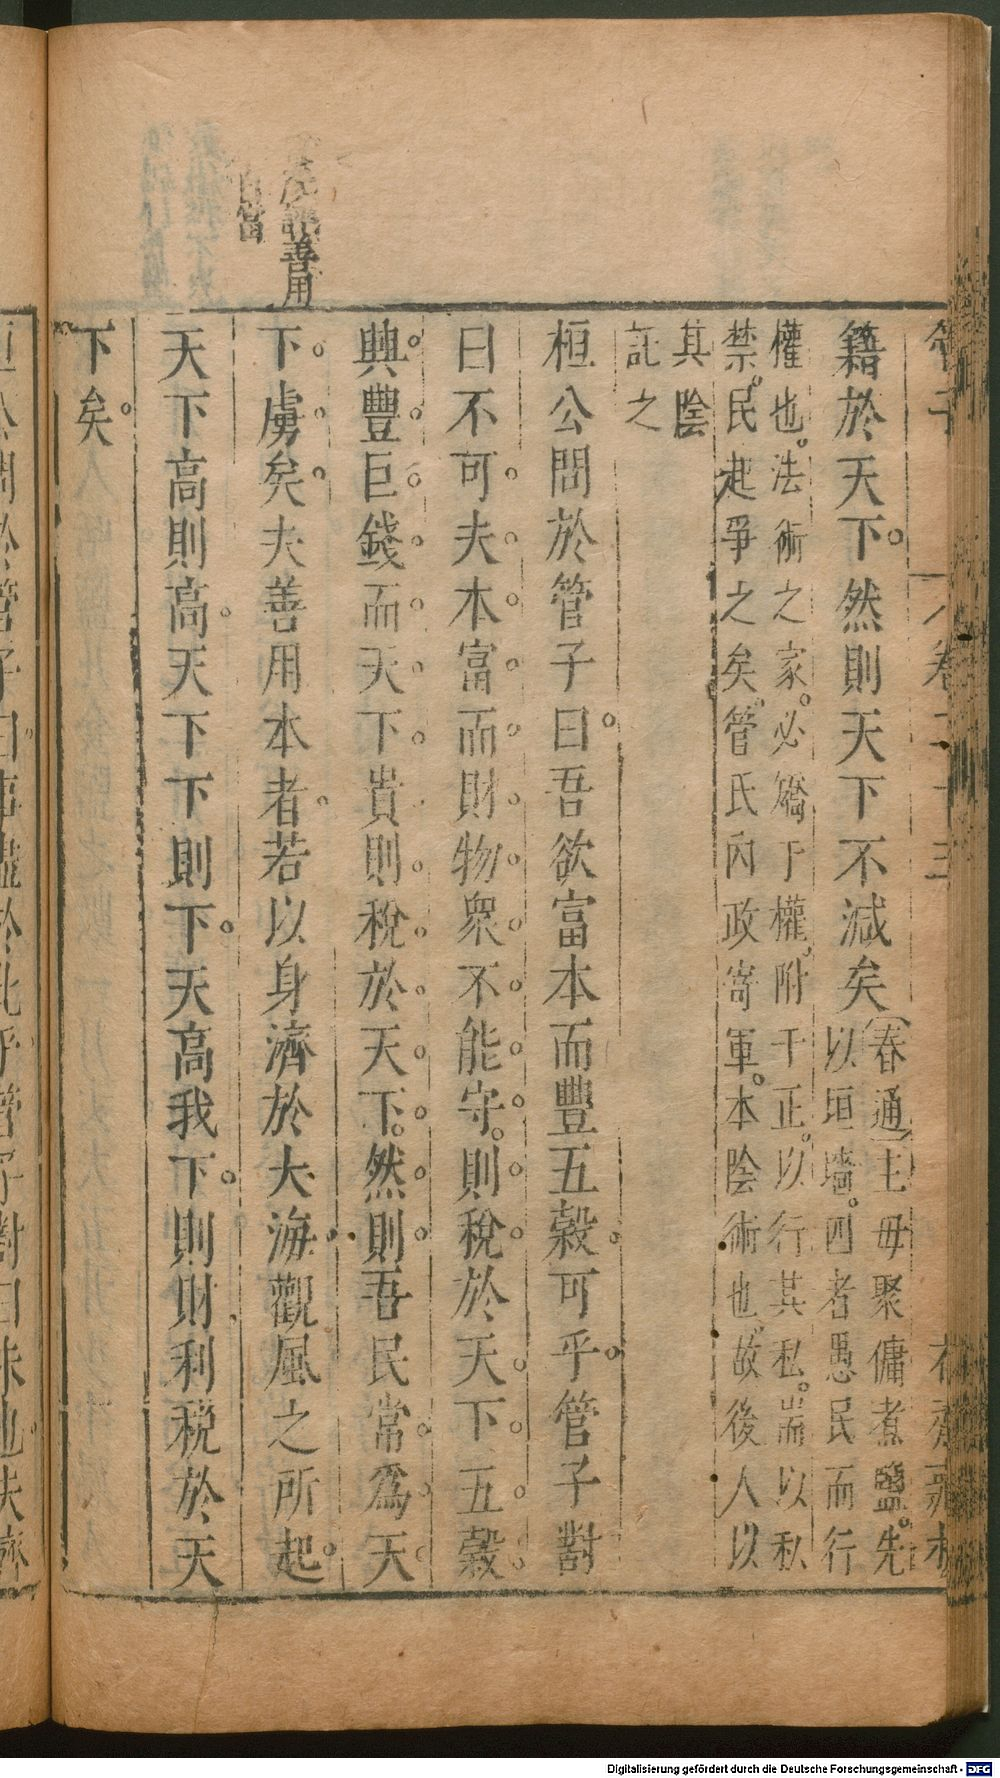 管子
卷二十三
籍於天下。然則天下不減矣（春通）主毋聚傭煮鹽。先
以垣墻。四者愚民而行
權也。法術之家。必矯于權，附于正。以行其私。耑以私
禁。民起爭之矣。管氏內政寄軍。本陰術也。故後人以
其陰
託之
桓公問於管子曰。吾欲富本而豐五穀。可乎。管子對
曰不可。夫本富而財物衆不能守。則稅於天下五穀
興豐巨錢而天下貴則稅於天下。然則吾民常爲天
下虜矣夫善用本者。若以身濟於大海觀風之所起。
天下高則高。天下下則下。天高我下。則財利稅於天
下矣。
善用
自當
Digitalisierung gefördert durch die Deutsche Forschungsgemeinschaft - DFG